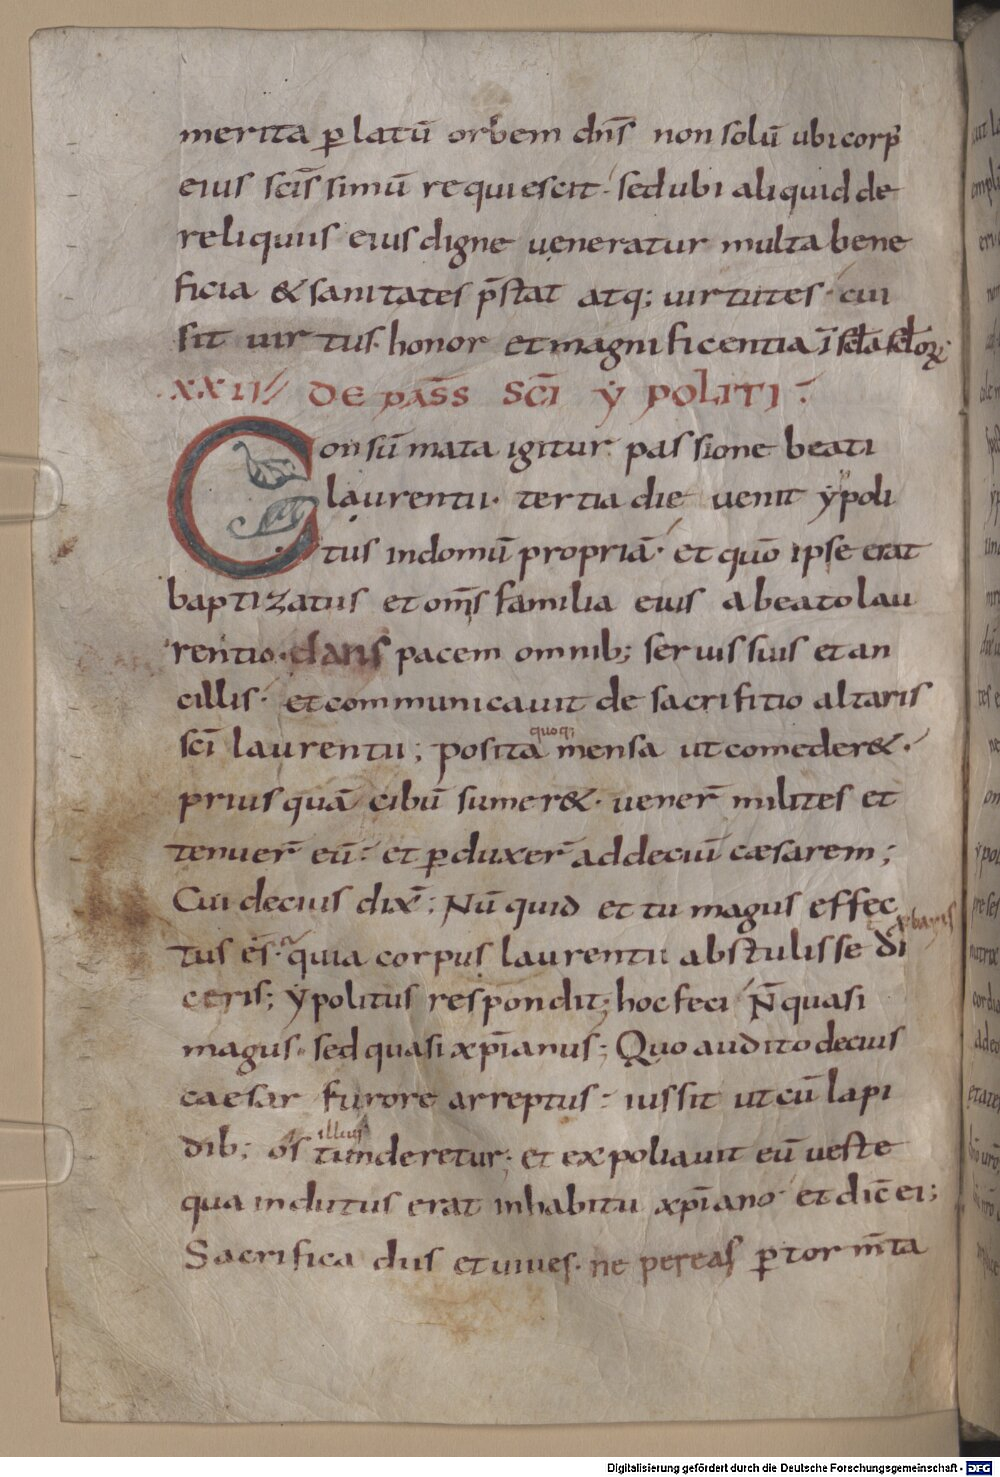 merita ꝑ latū orbem dn̄s non solū ubi corꝑ
eius scīs simū requiescit· sed ubi aliquid de
reliquiis eius digne ueneratur multa bene
ficia & sanitates p̄stat atq; uirtutes· cui
sit uirtus· honor et magnificentia ī scła scłoꝝ
XXII DE PASS̄ SC̄I YPOLITI·
Consūmata igitur passione beati
laurentii· tertia die uenit ẏpoli
tus in domū propriā· et quō ipse erat
baptizatus et om̄s familia eius a beato lau
rentio· dans pacem omnib; seruis suis et an
cillis· et communicauit de sacrifitio altaris
sc̄i laurentii; posita mensa ut comeder&·
quoq;
prius quā cibū sumer&· uener̄ milites et
tenuer̄ eū· et ꝑduxer̄ ad deciū cæsarem;
Cui decius dix̄; Nū quid et tu magus effec
tus ēs· quia corpus laurentii abstulisse di
ceris; ẏpolitus respondit; hoc feci N̄ quasi
magus· sed quasi xp̄ianus; Quo audito decius
caesar furore arreptus· iussit ut cū lapi
dib; os tunderetur; et expoliauit eū ueste
illius
qua indutus erat inhabitu xp̄iano· et dic̄ ei;
Sacrifica diis et uiues· ne pereas ꝑ torm̄ta
Digitalisierung gefördert durch die Deutsche Forschungsgemeinschaft - DFG